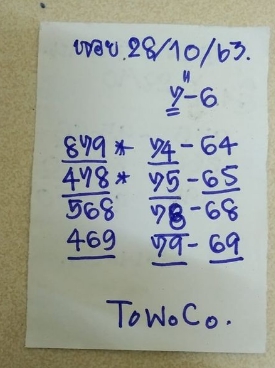 28/10/63.
7-6
879* 74-64
478* 75-65
568 78-68
469 79-69
ToWoCo.